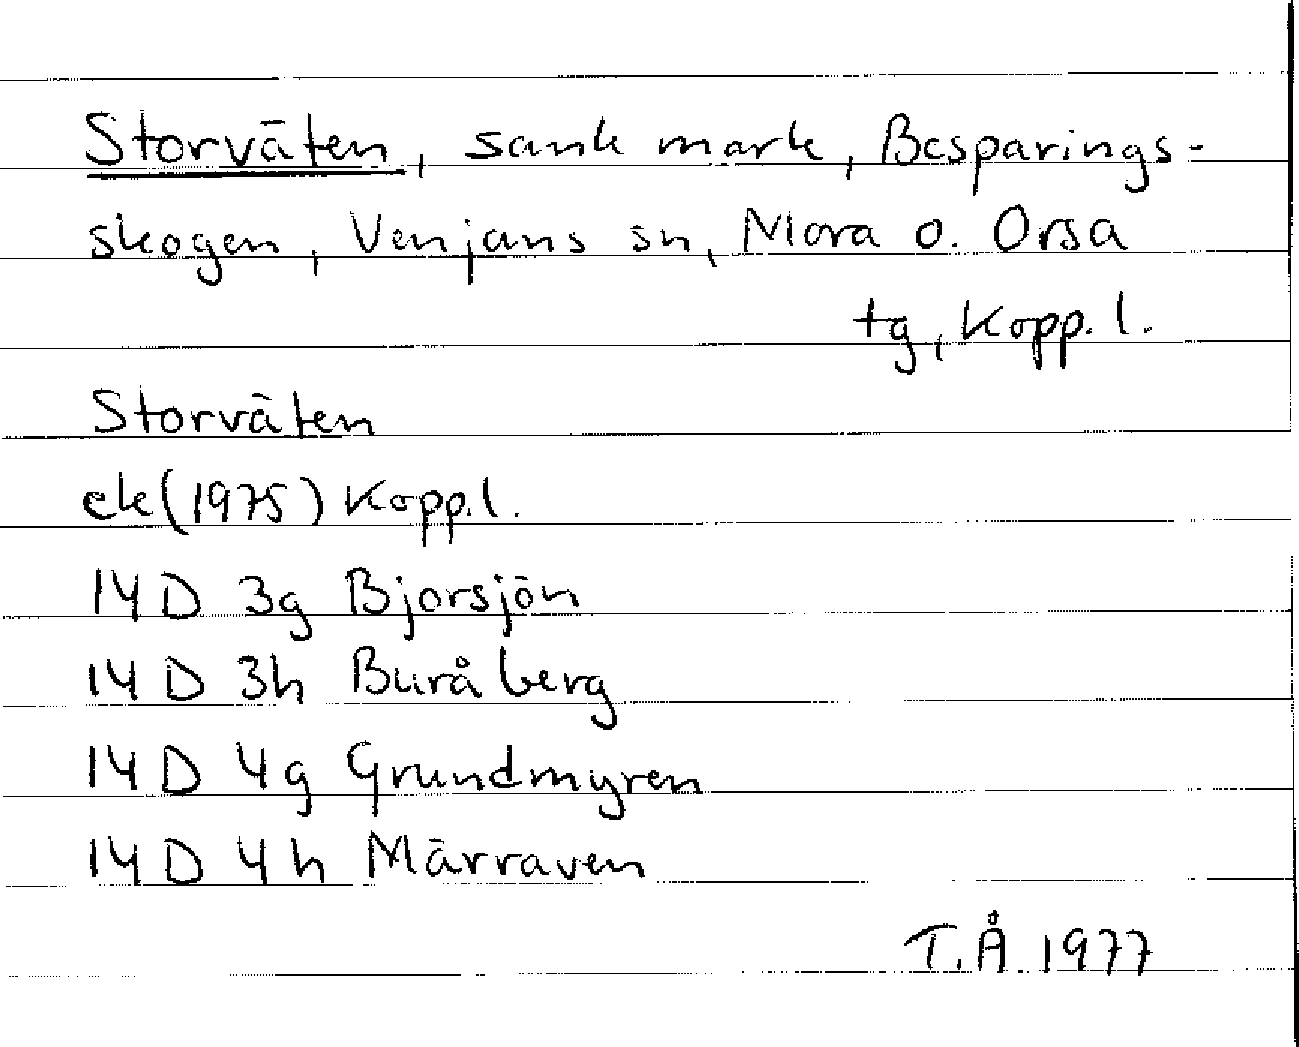 Storväten, sank mark, Besparings-
skogen, Venjans sn, Mora o. Orsa
tg, Kopp. l.
Storväten
ek (1975) Kopp. l.
14 D 3g Bjorsjön
14 D 3h Buråberg
14 D 4g Grundmyren
14 D 4h Märraven
T.Å. 1977